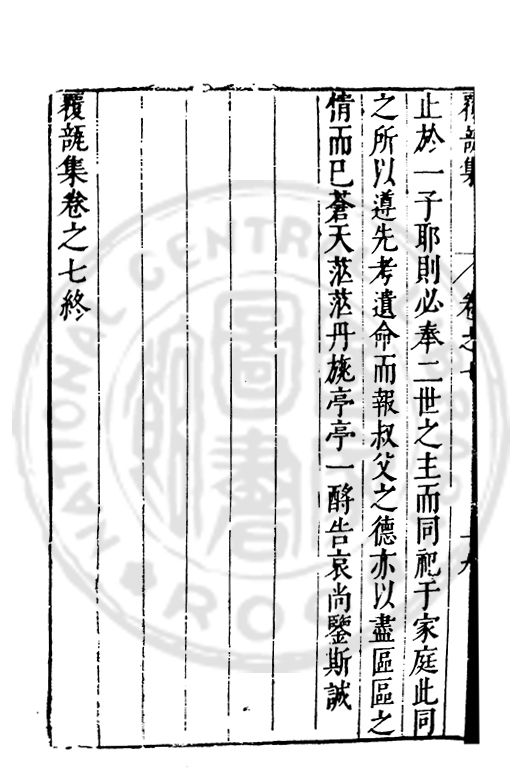 覆瓿集 卷之七 十九
止於一子耶則必奉二世之主而同祀于家庭此同
之所以遵先考遺命而報叔父之德亦以盡區區之
情而已蒼天茫茫丹旐亭亭一酹告哀尚鑒斯誠
覆瓿集卷之七終
NATIONAL CENTRAL LIBRARY
圖書